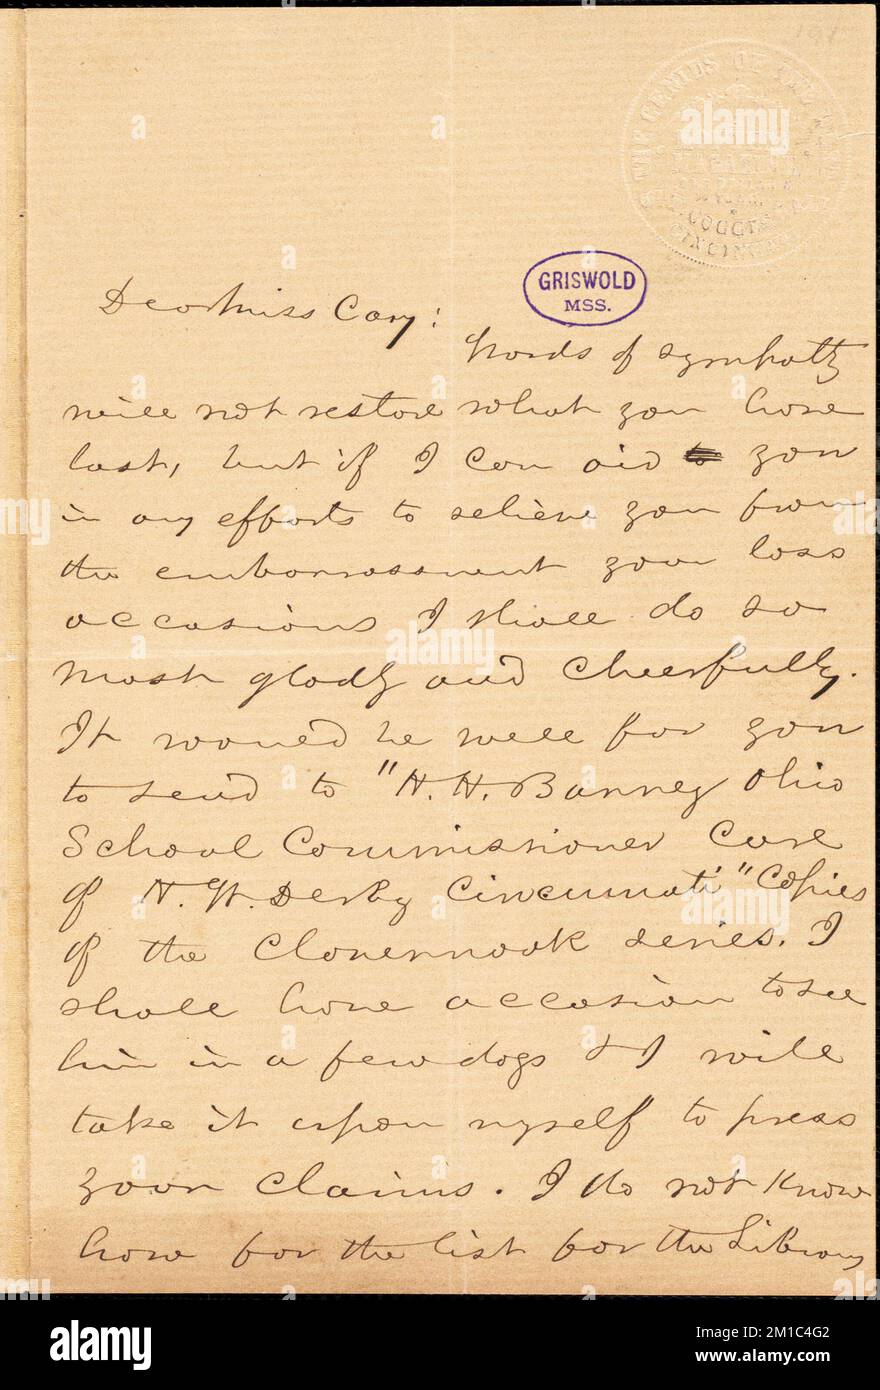 191
THE GENIUS OF THE
COGGES
CINCINNATI
GRISWOLD
MSS.
Dear Miss Cary:
Words of sympathy
will not restore what you have
lost, but if I can aid to you
in any efforts to relieve you from
the embarrassment your loss
occasions I shall do so
most gladly and cheerfully.
It would be well for you
to send to "H. H. Barney Ohio
School Commissioner Care
of H. W. Derby Cincinnati" Copies
of the Clovernook series. I
shall have occasion to see
him in a few days & I will
take it upon myself to press
your claims. I do not know
how far the list for the Library
alamy
Image ID: 2M1C4G2
www.alamy.com